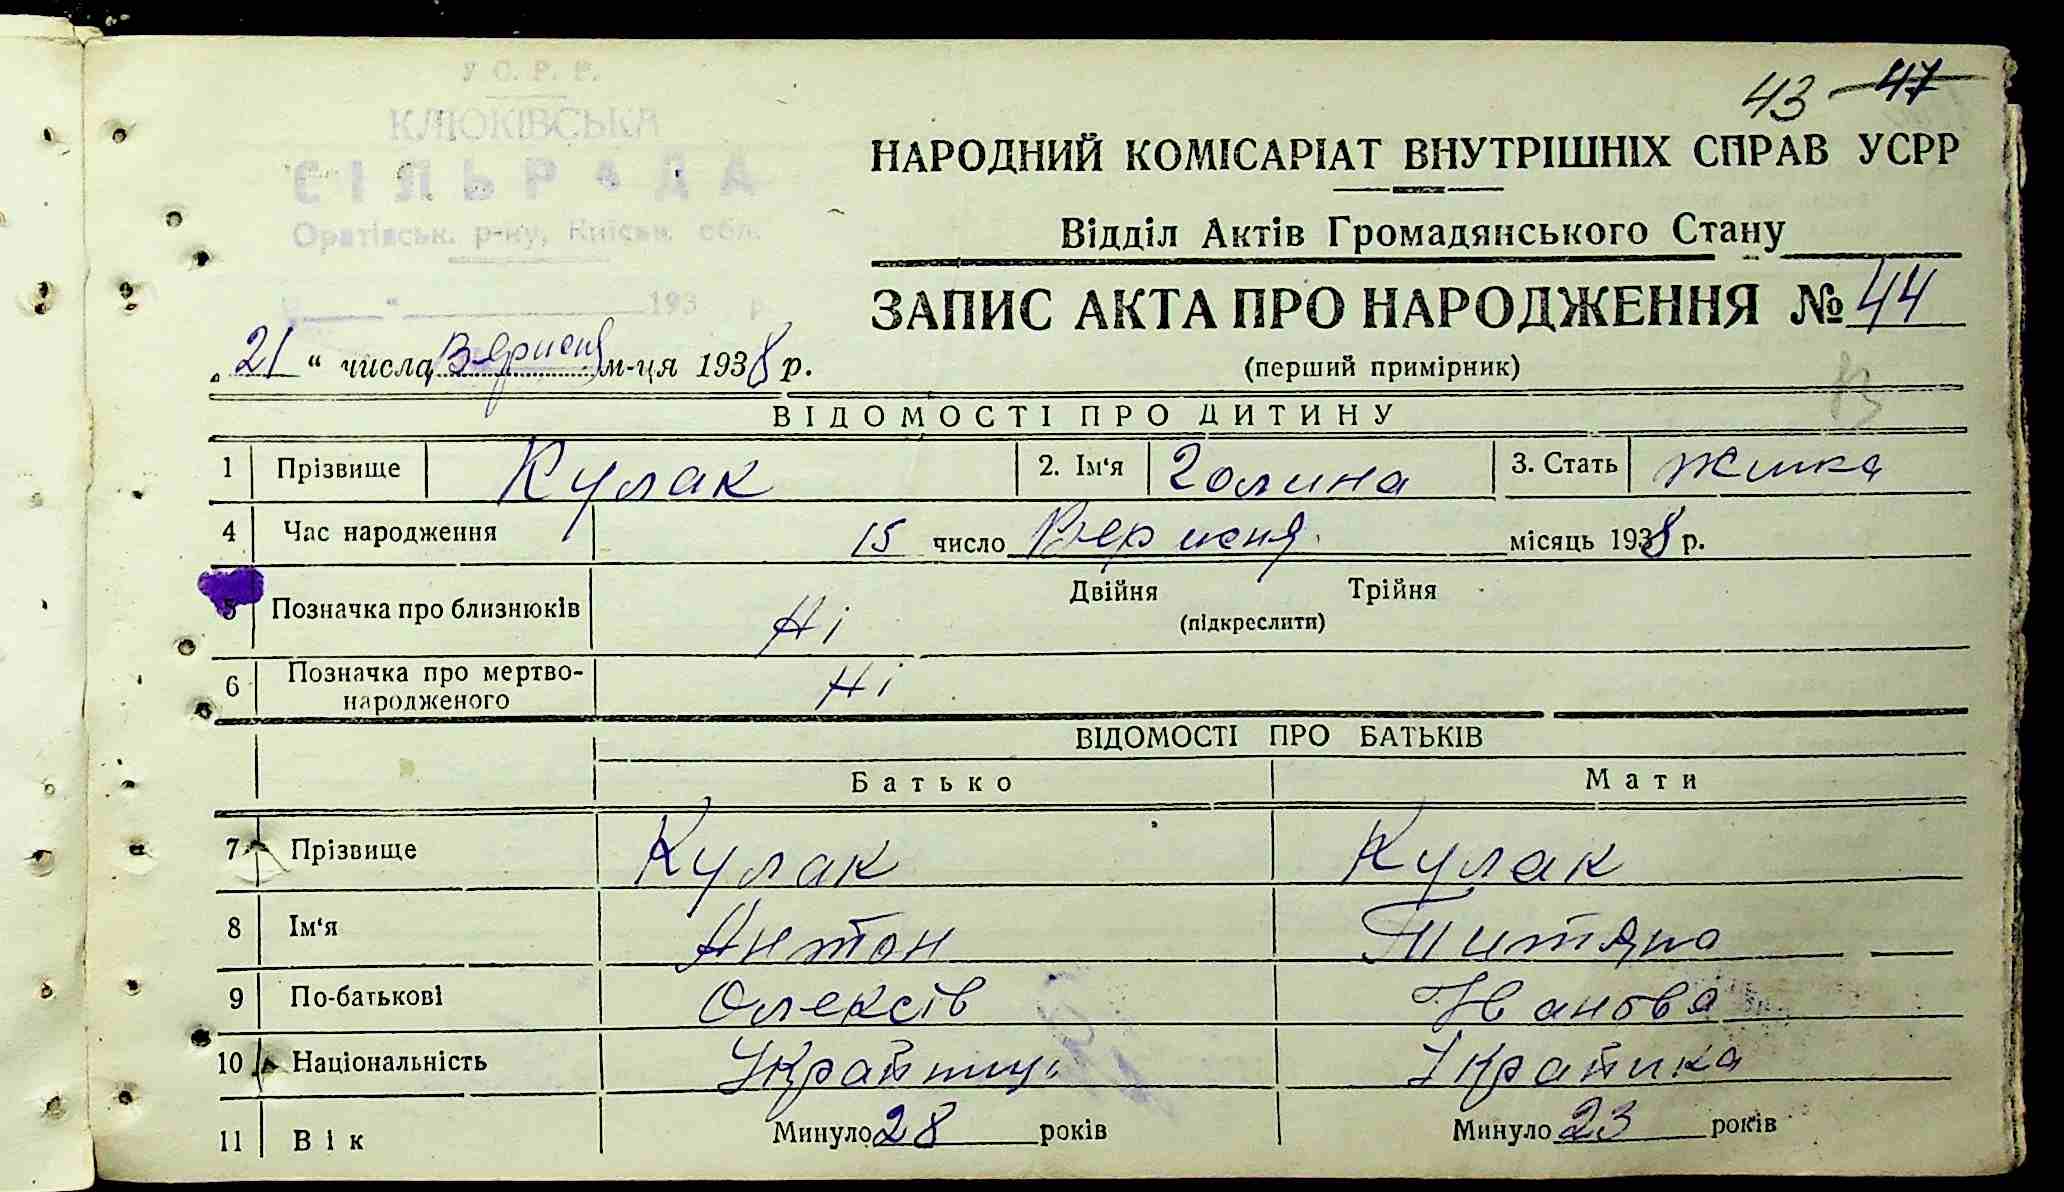 У С. Р. Р.
КЛЮКІВСЬКА
СІЛЬРАДА
Оратівськ. р-ну, Київськ. обл.
„ “ 193 р.
43 47
НАРОДНИЙ КОМІСАРІАТ ВНУТРІШНІХ СПРАВ УСРР
Відділ Актів Громадянського Стану
ЗАПИС АКТА ПРО НАРОДЖЕННЯ № 44
(перший примірник)
„21“ числа Вересня м-ця 1938 р.
ВІДОМОСТІ ПРО ДИТИНУ
1 Прізвище Кулак 2. Ім‘я Голина 3. Стать Жинка
4 Час народження 15 число Вересня місяць 1938 р.
5 Позначка про близнюків Ні Двійня Трійня
(підкреслити)
6 Позначка про мертво-
народженого Ні
ВІДОМОСТІ ПРО БАТЬКІВ
Батько Мати
7 Прізвище Кулак Кулак
8 Ім‘я Антон Титяна
9 По-батькові Олексів Иванова
10 Національність Украйниць Украйнка
11 Вік Минуло 28 років Минуло 23 років